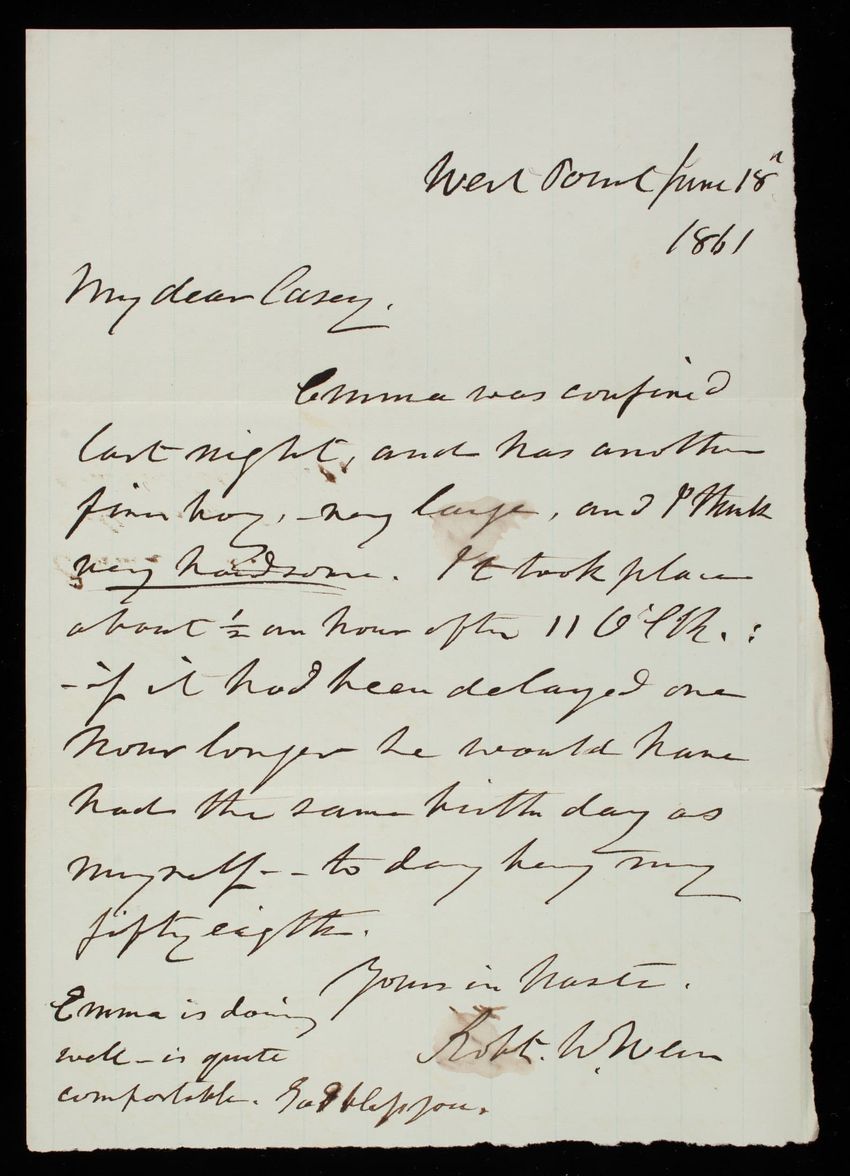 West Point June 18th
1861
My dear Casey.
Emma was confined
last night, and has another
fine boy, - very large, and I think
very handsome. It took place
about ½ an hour after 11 O'Clk. :
- if it had been delayed one
hour longer he would have
had the same birth day as
myself - - to day being my
fifty eigth.
Yours in haste.
Robt. W. Weir
Emma is doing
well - is quite
comfortable. God bless you.